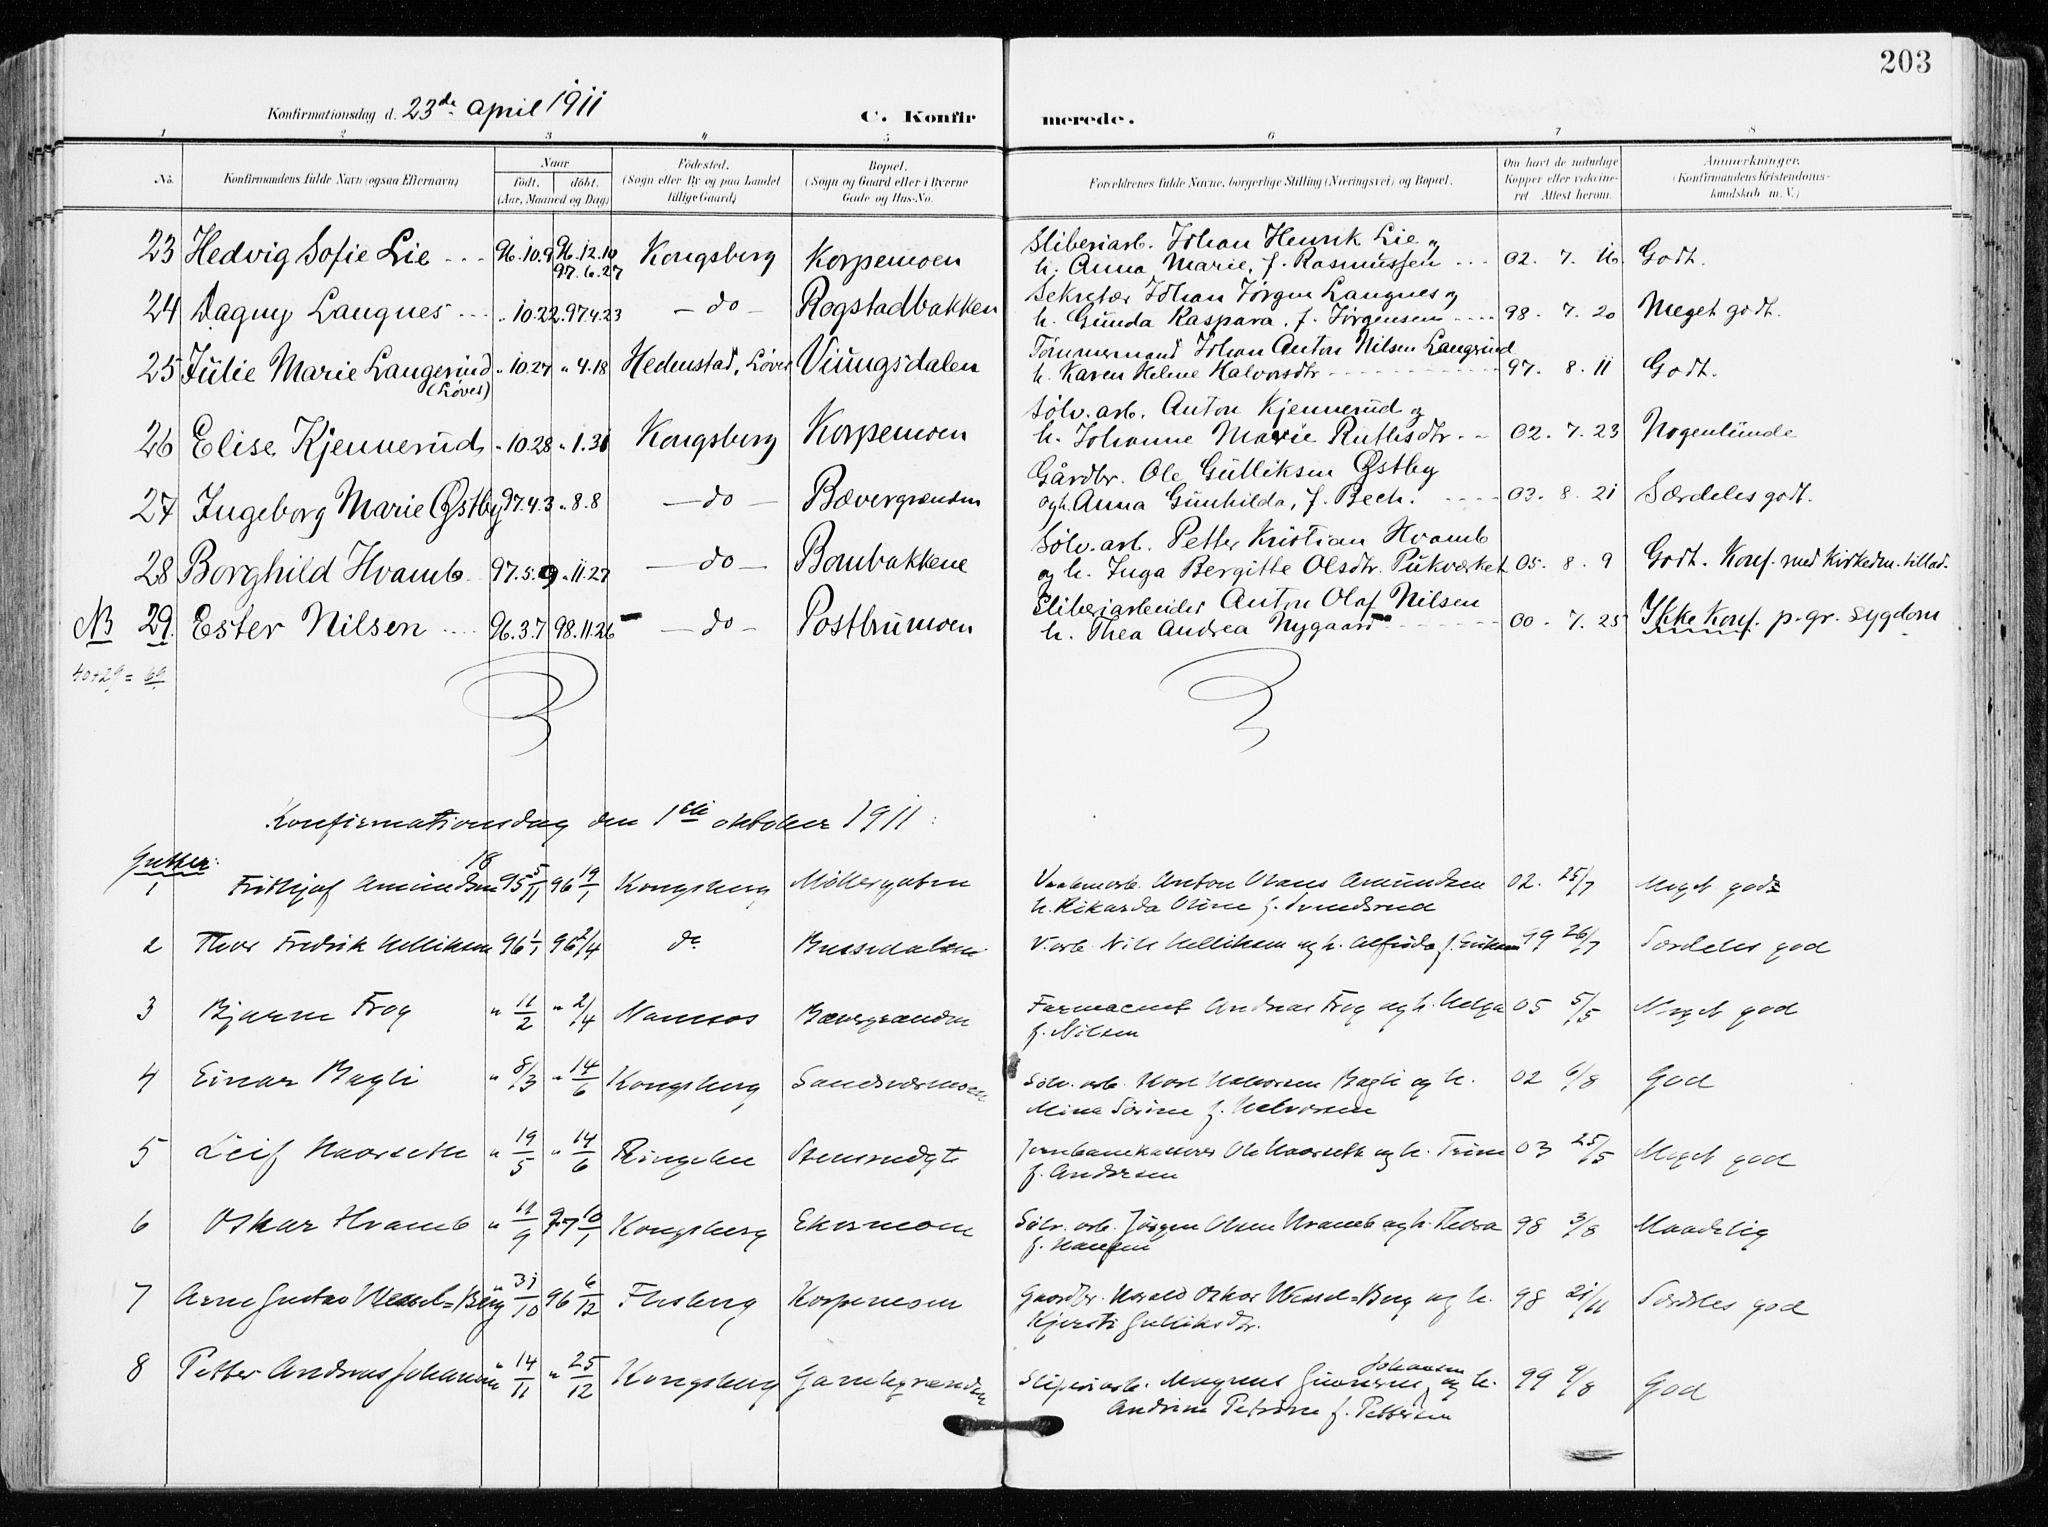 203
Konfirmationsdag d. 23de April 1911 C. Konfirmerede.
1 2 3 4 5 6 7 8
No. Konfirmandens fulde Navn (ogsaa Efternavn) Naar født. døbt. (Aar, Maaned og Dag) Fødested. (Sogn eller By og paa Landet tillige Gaard) Bopæl. (Sogn og Gaard eller i Byerne Gade og Hus-No. Forældrenes fulde Navne, borgerlige Stilling (Næringsvei) og Bopæl. Om havt de naturlige Kopper eller vaccineret Attest herom. Anmerkninger. (Konfirmandens Kristendomskundskab m. V.)
23 Hedvig Sofie Lie 96.10.9 96.12.10 97.6.27 Kongsberg Korpemoen Sliberiarb. Johan Henrik Lie og
h. Anna Marie, f. Rasmussen 02. 7. 16. Godt.
24 Dagny Langnes " 10.22. 97.4.23 - do - Rogstadbakken Sekretær Johan Jørgen Langnes og
h. Gunda Kaspara, f. Jørgensen 98. 7. 20 Meget godt.
25 Julie Marie Langerud (Løver) " 10.27 " 4.18 Hedenstad, Løver Viungsdalen Tømmermand Johan Anton Nilsen Langrud
h. Karen Helene Halvorsdtr 97. 8. 11 Godt.
26 Elise Kjennerud " 10.28 " 1.31 Kongsberg Korpemoen Sølv. arb. Anton Kjennerud og
h. Johanne Marie Ruthsdtr. 02. 7. 23 Nogenlunde
27 Ingeborg Marie Østby 97.4.3 " 8.8 - do - Bævergrænden Gårdbr. Ole Gulliksen Østby
og h. Anna Gunhilda, f. Bech. 03. 8. 21 Særdeles godt.
28 Borghild Hvamb 97.5.9 " 11.27 - do - Bombakkene Sølv. arb. Petter Kristian Hvamb
og h. Inga Bergitte Olsdtr. Pukværket 05. 8. 9 Godt. Konf. med Kirkedm. tillad.
NB 29. Ester Nilsen 96.3.7 98.11.26 - do - Postbrumoen Sliberiarbeider Anton Olaf Nilsen
h. Thea Andrea Nygaard 00. 7. 25 Ikke Konf. p. gr. sygdom
40+29 = 69
Konfirmationsdag den 1ste oktober 1911:
Gutter:
1 Fridtjof Amundsen 18 95 5/11 96 19/1 Kongsberg Møllergaten Anton Olaus Amundsen
h. Rikarda Oline f. 02. 25/7 Meget god
2 Thor Fredrik Gulliksen 96 1/1 96 2/4 do Bussedalen V.arb. Nils Gulliksen og h. Alfrida f. 99 26/7 Særdeles god
3 Bjarne Frog " 11/2 " 2/4 Namsos Bævergrænden Farmaceut Andreas Frog og h. Helga
f. Nilsen 05 5/5 Meget god
4 Einar Bagli " 8/3 " 14/6 Kongsberg Sandsværmoen Sølv. arb. Halvorsen Bagli og h.
Mina Sørine f. Halvorsen 02 6/8 God
5 Leif Haarseth " 19/5 " 14/6 Ringebu Jernbanekasserer Ole Haarseth og h. Trine
f. Andersen 03 25/5 Meget god
6 Oskar Hvamb " 11/9 97 10/1 Kongsberg Ekornmoen Sølv. arb. Jørgen Olsen Hvamb og h. Thora
f. Hansen 98 3/8 Maadelig
7 Arne Gustav Wessel=Berg " 31/10 96 6/12 Flesberg Korpemoen Gaardbr. Harald Oskar Wessel=Berg og h.
Kjersti Gulliksdtr. 98 21/11 Særdeles god
8 Petter Andreas Johansen " 14/11 " 25/12 Kongsberg Gamlegrænden Sliperiarb. Magnus Johansen og h.
Andrine Petrine f. Pettersen 99 9/8 God